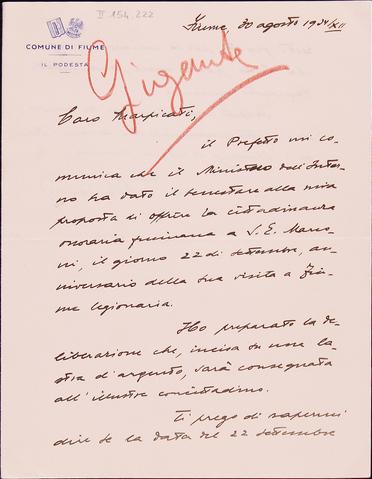 II 154, 222
COMUNE DI FIUME
IL PODESTÀ
Fiume 30 agosto 1934/XII
Gigante
Caro Marpicati,
il Prefetto mi co-
munica che il Ministero dell'Inter-
no ha dato il benestare alla mia
proposta di offrire la cittadinanza
onoraria fiumana a S. E. Marco-
ni, il giorno 22 di settembre, an-
niversario della sua visita a Fiu-
me legionaria.
Ho preparato la de-
liberazione che, incisa su una la-
stra d'argento, sarà consegnata
all'illustre concittadino.
Ti prego di sapermi
dire se la data del 22 settembre